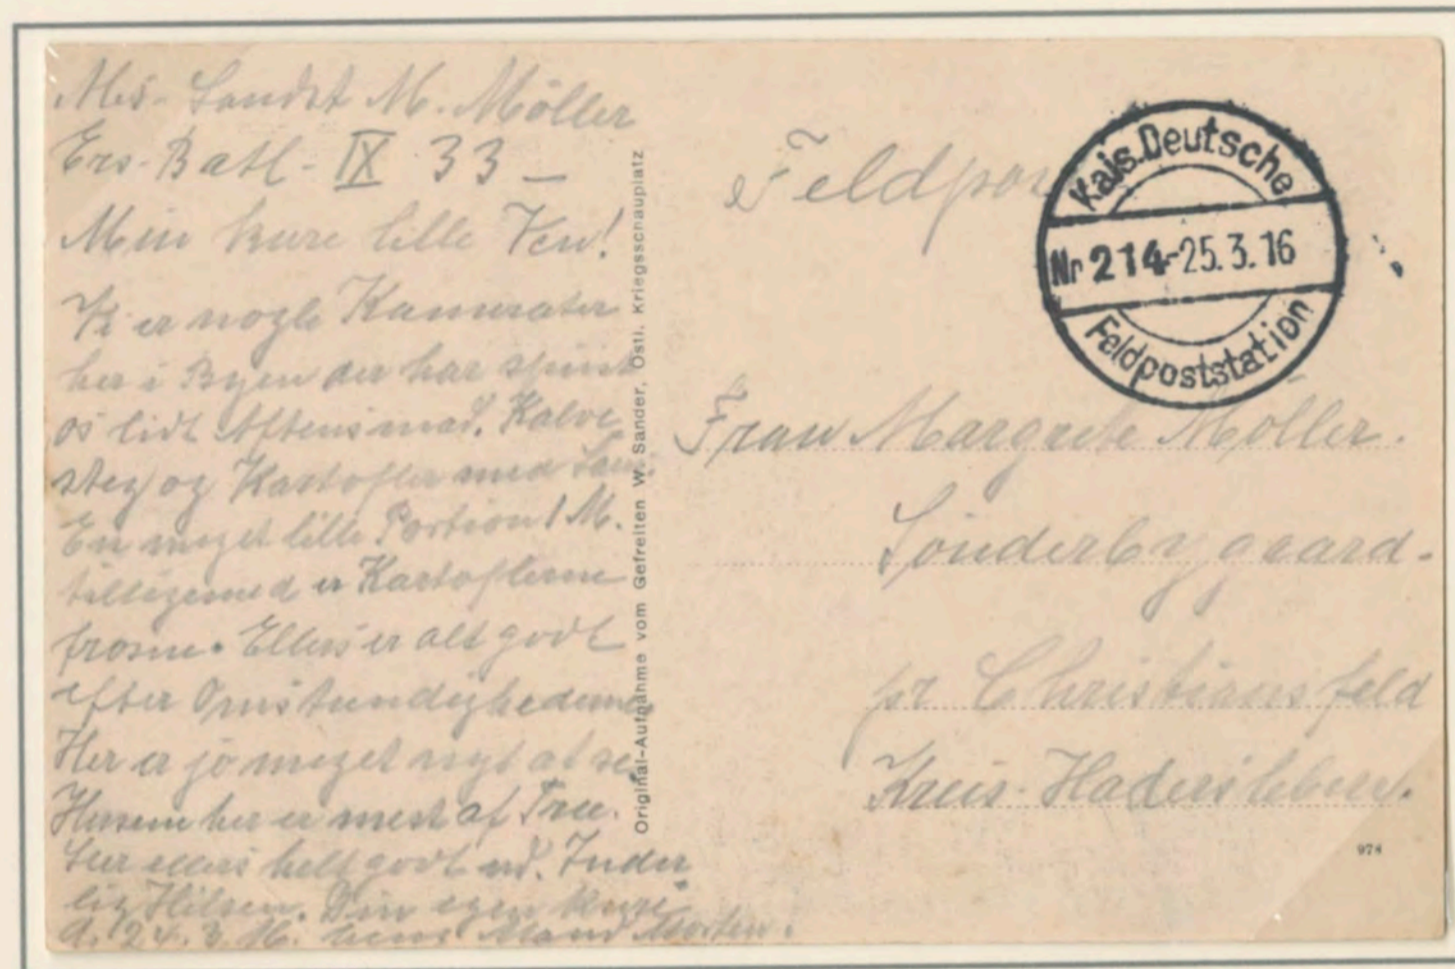 M. Möller
Ers. Batl. IX 33 —
Min kære lille Ven!
Vi er nogle Kamerater
her i Byen der har spist
os lidt Aftensmad. Kalve
steg og Kartofler med
En meget lille Portion 1 M.
tilligemed er Kartoflerne
frosne. Ellers er alt godt
efter Omstændighederne
Her er jo meget nyt at se.
Husene her er mest af Træ.
Ser ellers helt godt ud. Inder
lig Hilsen. Din egen
d. 24.3.16. Mand Morten.
Original-Aufnahme vom Gefreiten W. Sander, Östl. Kriegsschauplatz
Feldpost
Kais. Deutsche
Nr 214 - 25.3.16
Feldpoststation
Frau Margrete Möller.
Sönderbygaard.
pr Christiansfeld
Kreis Hadersleben.
974